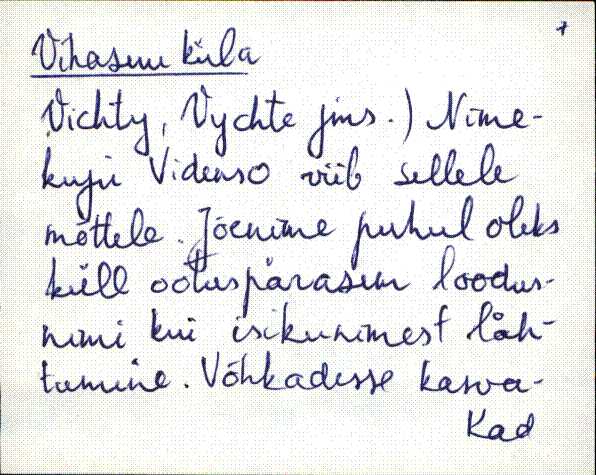 Vihasuu küla
Vichty, Vychte jms.) Nime-
kuju Videnso viib sellele
mõttele. Jõenime puhul oleks
küll ootuspärasem loodus-
nimi kui isikunimest läh-
tumine. Võhkadesse kasva-
kad